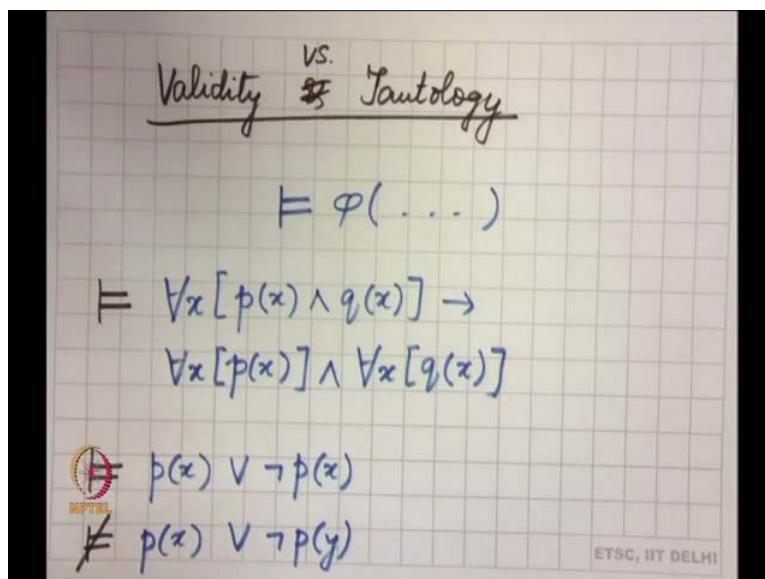 Validity vs. Tautology
⊨ φ(....)
⊨ ∀x[p(x) ∧ q(x)] →
∀x[p(x)] ∧ ∀x[q(x)]
⊨ p(x) ∨ ¬p(x)
NPTEL
⊭ p(x) ∨ ¬p(y)
ETSC, IIT DELHI